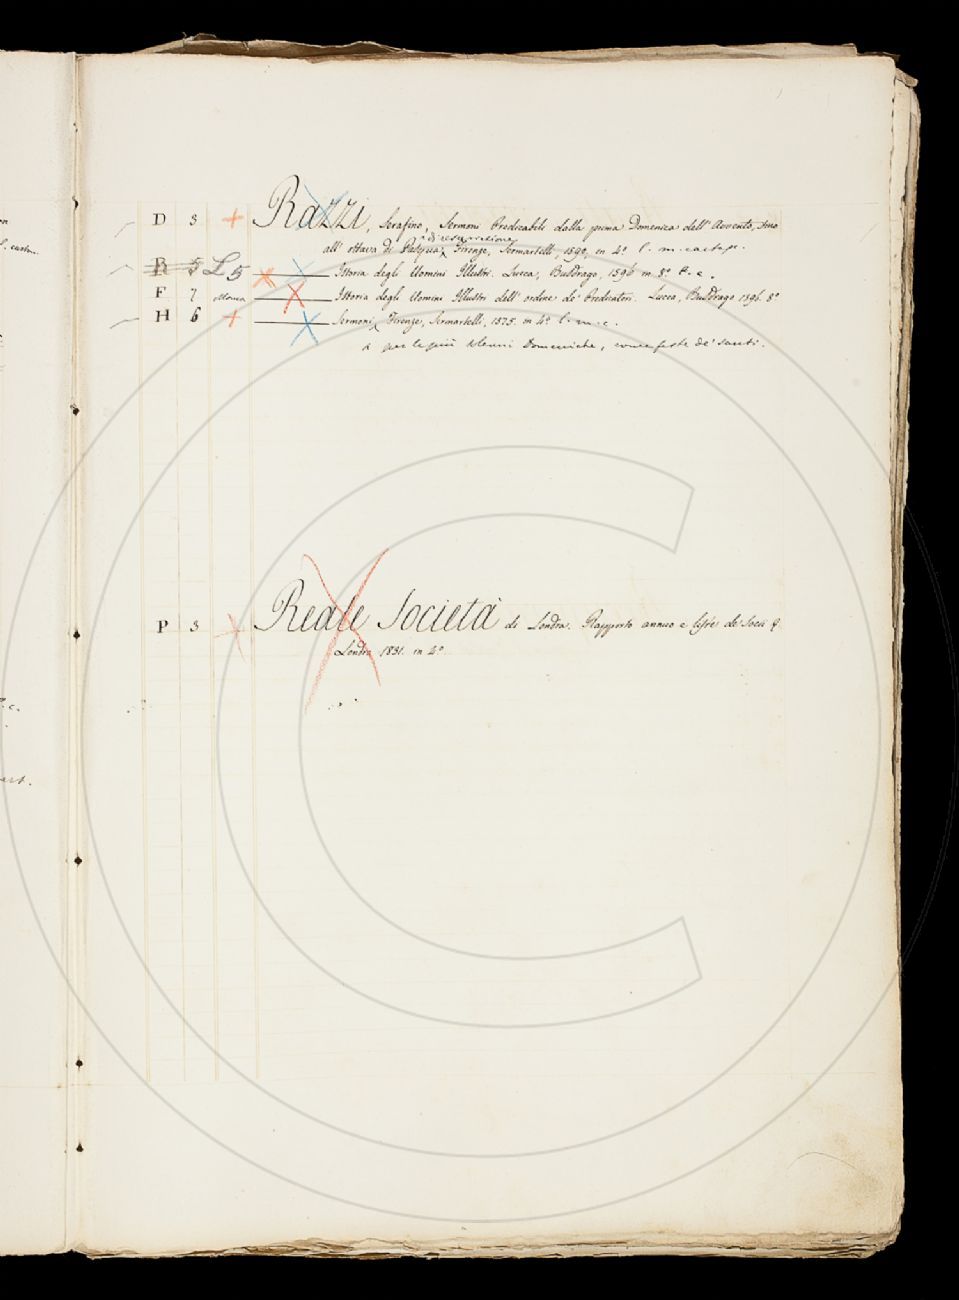 D 3 + Razzi, Serafino, Sermoni Predicabili dalla prima Domenica dell' Avvento, sino
di resurrezione
all' ottava di Pasqua, Firenze, Sermartelli, 1590, in 4º l. m. cartap.
R 5 L 5 Istoria degli Uomini Illustri. Lucca, Busdrago, 1596 in 8º l. c.
F 7 Istoria degli Uomini Illustri dell' ordine de' Predicatori. Lucca, Busdrago 1596. 8º
H 6 + Sermoni Firenze, Sermartelli, 1575. in 4º l. m. c.
x per le più solenni Domeniche, come feste de' santi.
P 3 Reale Società di Londra. Rapporto annuo e liste de' Socii &
Londra 1831. in 4º